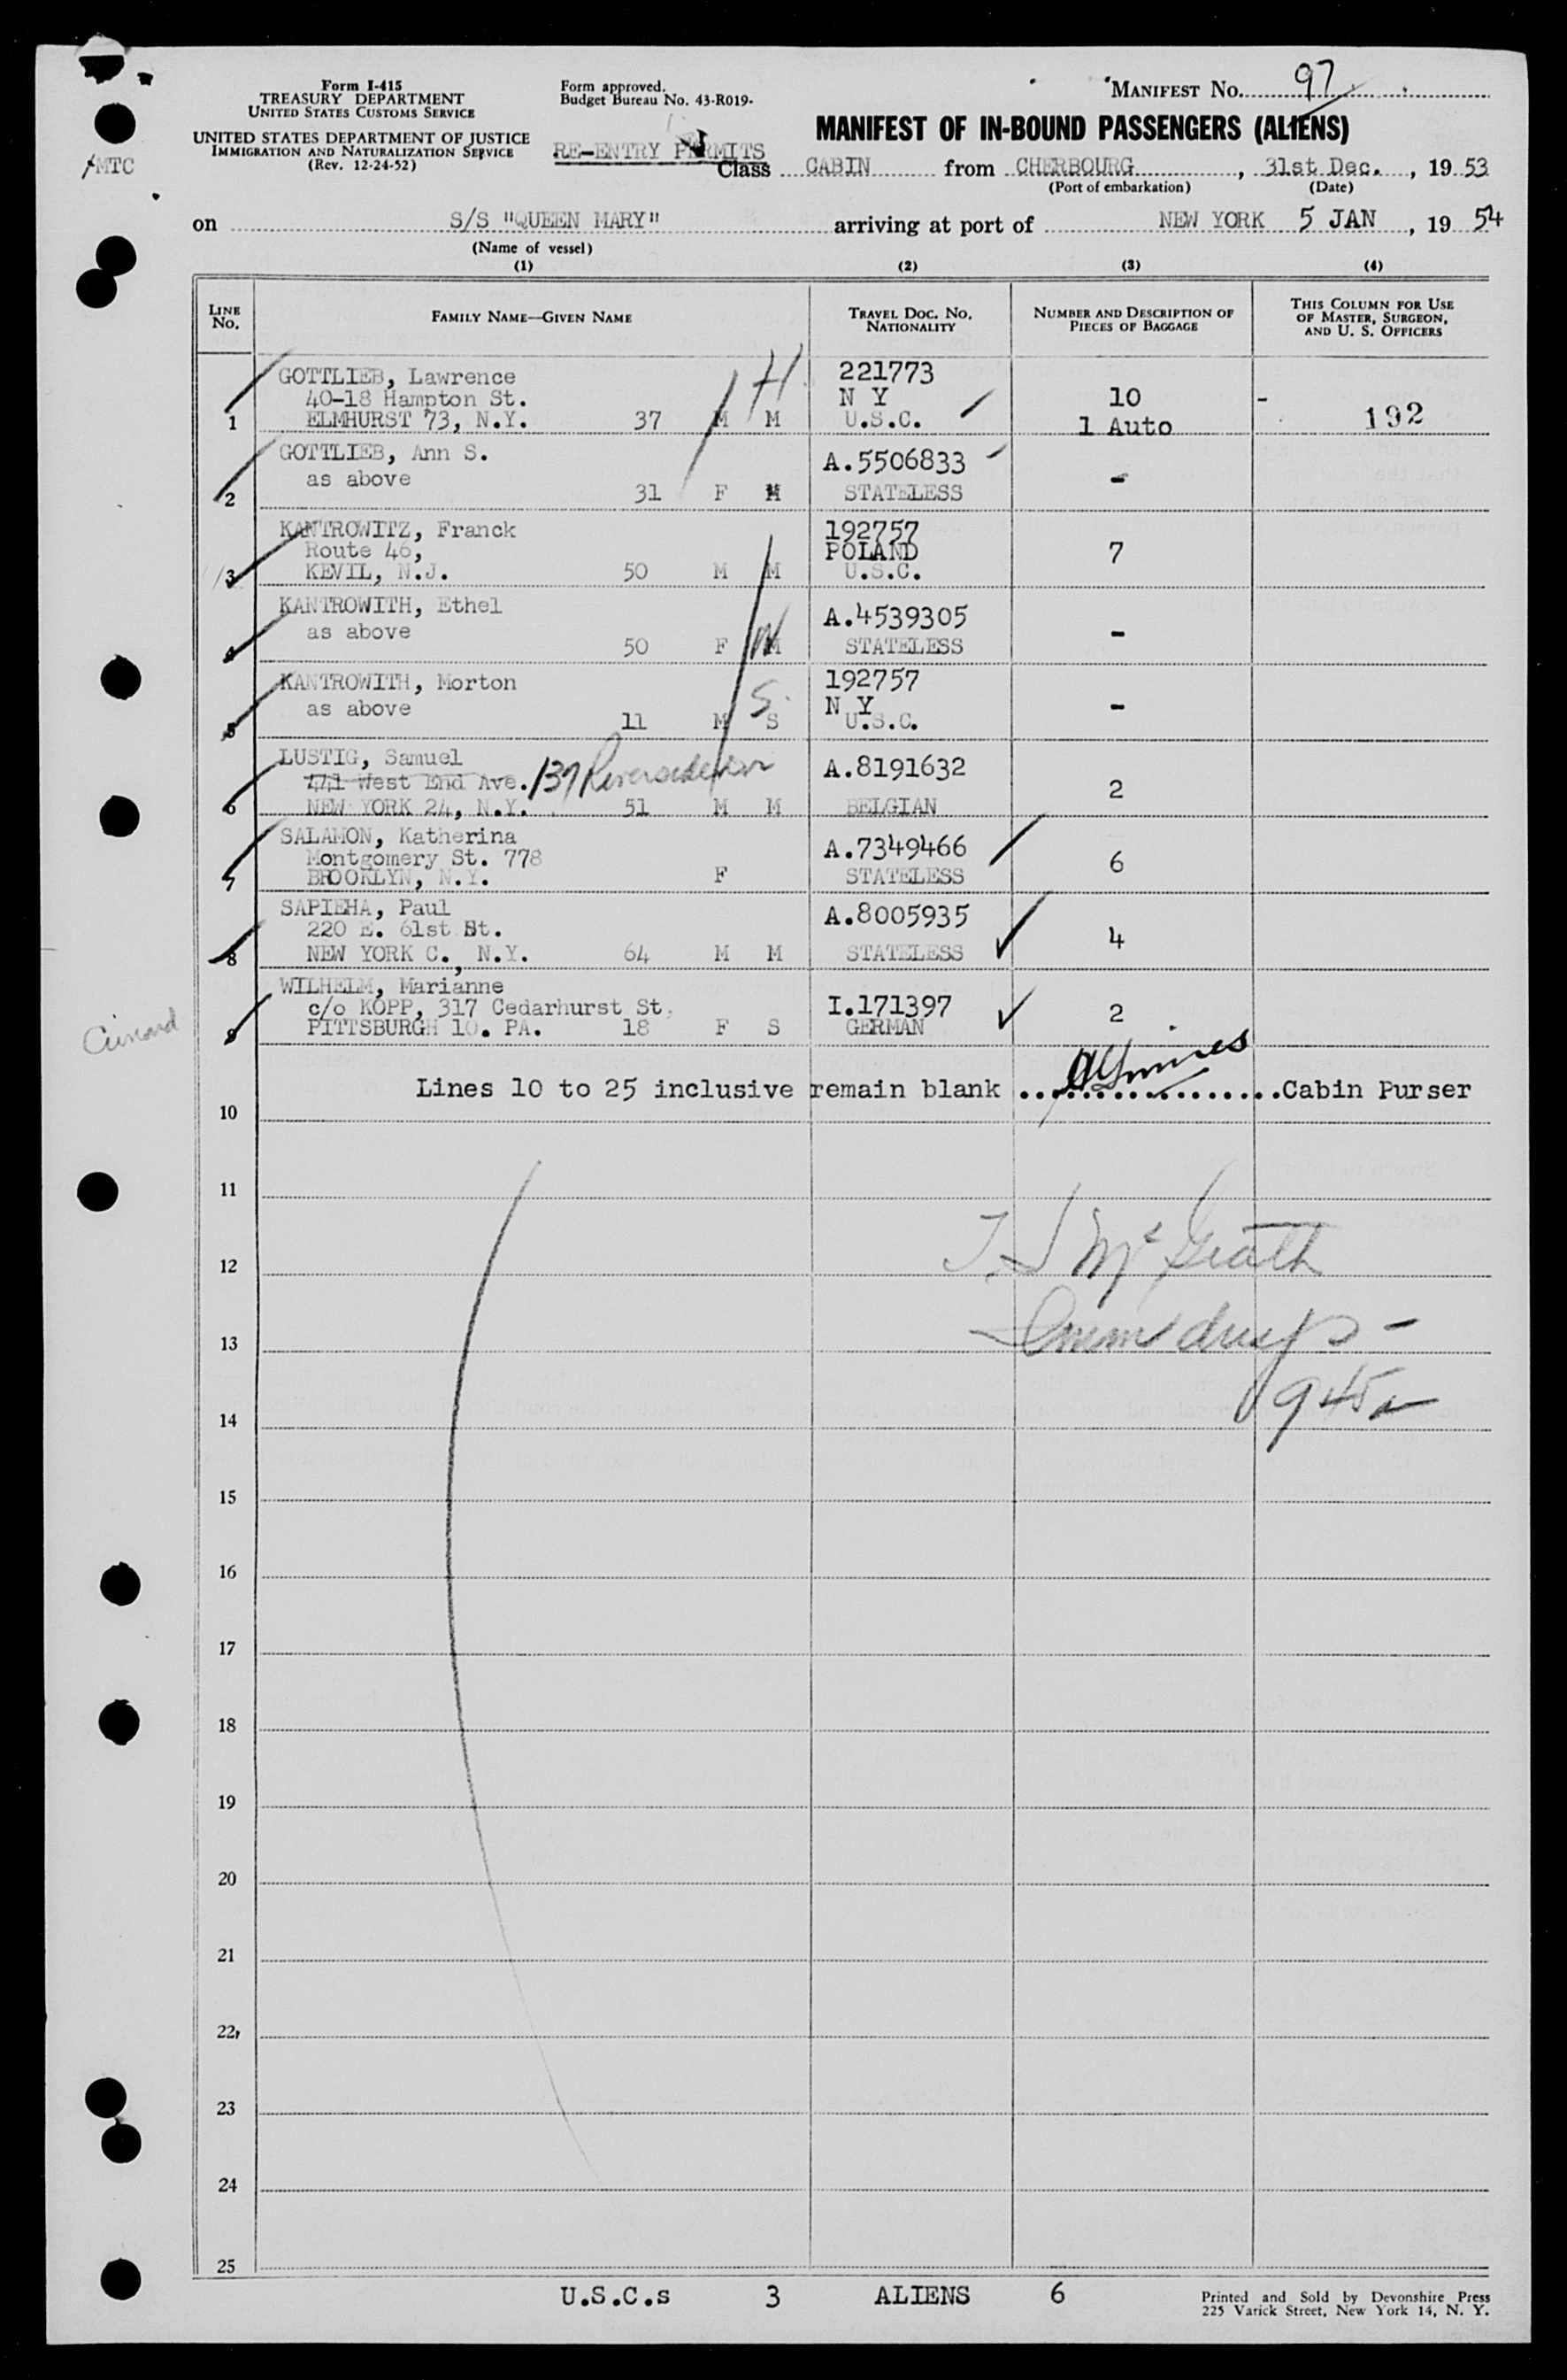 Form I-415
TREASURY DEPARTMENT
UNITED STATES CUSTOMS SERVICE
UNITED STATES DEPARTMENT OF JUSTICE
IMMIGRATION AND NATURALIZATION SERVICE
(Rev. 12-24-52)
Form approved.
Budget Bureau No. 43-R019-
RE-ENTRY PERMITS
MTC
MANIFEST No. 97
MANIFEST OF IN-BOUND PASSENGERS (ALIENS)
Class CABIN from CHERBOURG, 31st Dec., 19 53
(Port of embarkation) (Date)
on S/S "QUEEN MARY" arriving at port of NEW YORK 5 JAN, 19 54
(Name of vessel)
(1) (2) (3) (4)
LINE No. FAMILY NAME—GIVEN NAME TRAVEL DOC. No. NATIONALITY NUMBER AND DESCRIPTION OF PIECES OF BAGGAGE THIS COLUMN FOR USE OF MASTER, SURGEON, AND U. S. OFFICERS
GOTTLIEB, Lawrence 221773
40-18 Hampton St. H N Y 10 -
1 ELMHURST 73, N.Y. 37 M M U.S.C. 1 Auto 192
GOTTLIEB, Ann S. A.5506833
as above -
2 31 F M STATELESS
KANTROWITZ, Franck 192757
Route 46, POLAND 7
3 KEVIL, N.J. 50 M M U.S.C.
KANTROWITH, Ethel A.4539305
as above -
4 50 F M STATELESS
KANTROWITH, Morton 192757
as above S N Y -
5 11 M S U.S.C.
LUSTIG, Samuel A.8191632
West End Ave. 137 Riverside 2
6 NEW YORK 24, N.Y. 51 M M BELGIAN
SALAMON, Katherina A.7349466
Montgomery St. 778 6
7 BROOKLYN, N.Y. F STATELESS
SAPIEHA, Paul A.8005935
220 E. 61st St. 4
8 NEW YORK C., N.Y. 64 M M STATELESS
WILHELM, Marianne
c/o KOPP, 317 Cedarhurst St. I.171397 2
9 PITTSBURGH 10. PA. 18 F S GERMAN
Cunard
Lines 10 to 25 inclusive remain blank ..................Cabin Purser
10
11
12 T. J McGrath
13 Imm Insp -
14 945
15
16
17
18
19
20
21
22
23
24
25
U.S.C.s 3 ALIENS 6
Printed and Sold by Devonshire Press
225 Varick Street, New York 14, N. Y.